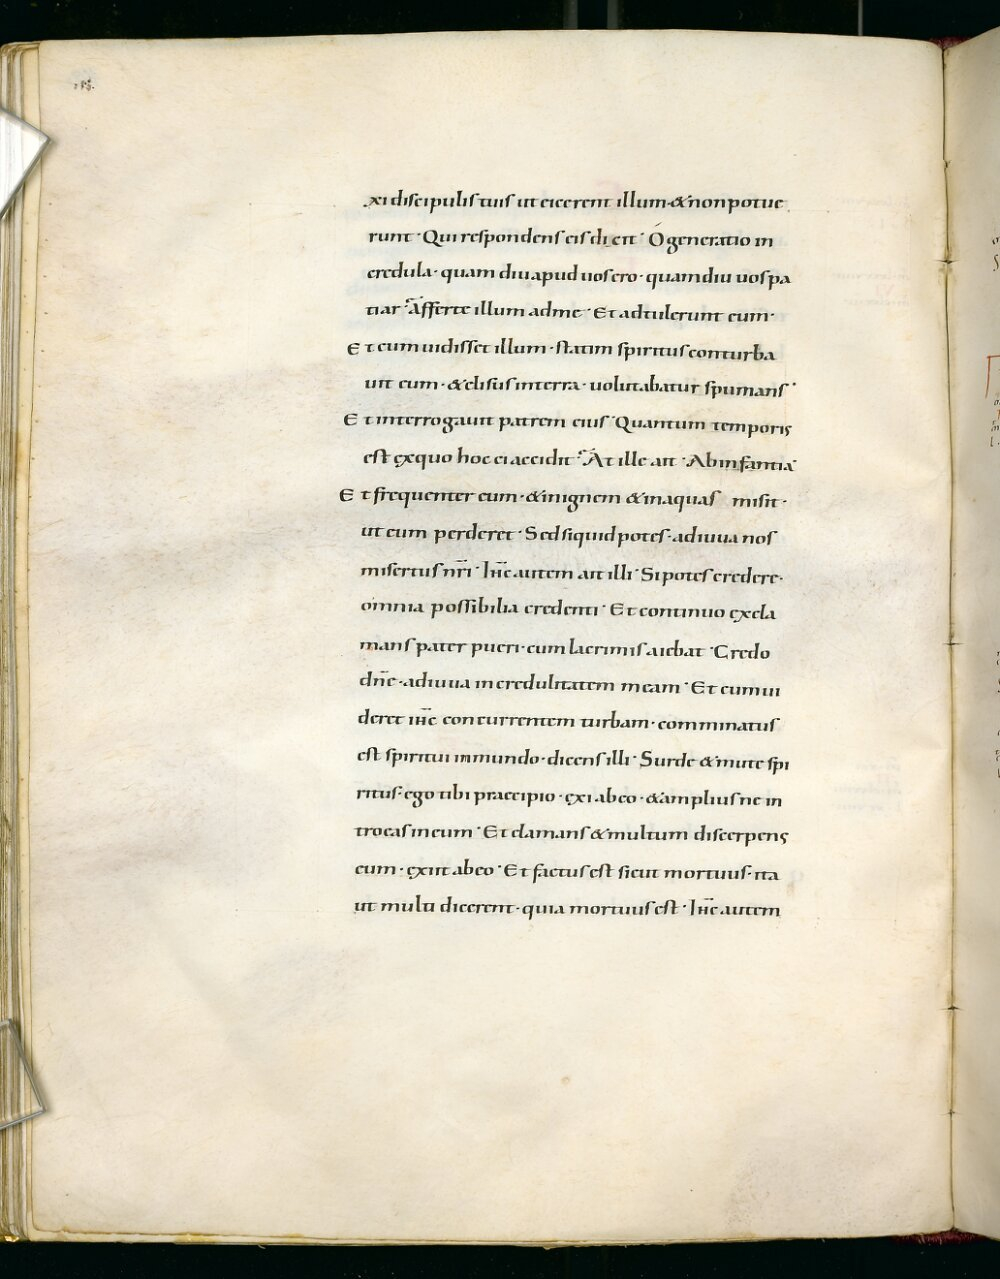 xi discipulis tuis ut eicerent illum · & non potue
runt · Qui respondens eis dicit · O generatio in
credula · quam diu apud vos ero · quamdiu vos pa
tiar · Afferte illum ad me · Et adtulerunt eum ·
Et cum vidisset illum · statim spiritus conturba
vit eum · & elisus in terra · volutabatur spumans ·
Et interrogavit patrem eius · Quantum temporis
est ęxquo hoc ei accidit · At ille ait · Ab infantia
Et frequenter eum · & in ignem & in aquas misit ·
ut eum perderet · Sed si quid potes · adiuva nos
misertus nr̄i · Ihc̄ autem ait illi · Si potes credere ·
omnia possibilia credenti · Et continuo ęxcla
mans pater pueri · cum lacrimis aiebat · Credo
dn̄e · adiuva incredulitatem meam · Et cum vi
deret ihc̄ concurrentem turbam · comminatus
est spiritui inmundo · dicens illi · Surde & mute spi
ritus · ego tibi praecipio · ęxi ab eo · & amplius ne in
troeas in eum · Et clamans & multum discerpens
eum · ęxiit ab eo · Et factus est sicut mortuus · ita
ut multi dicerent · quia mortuus est · Ihc̄ autem